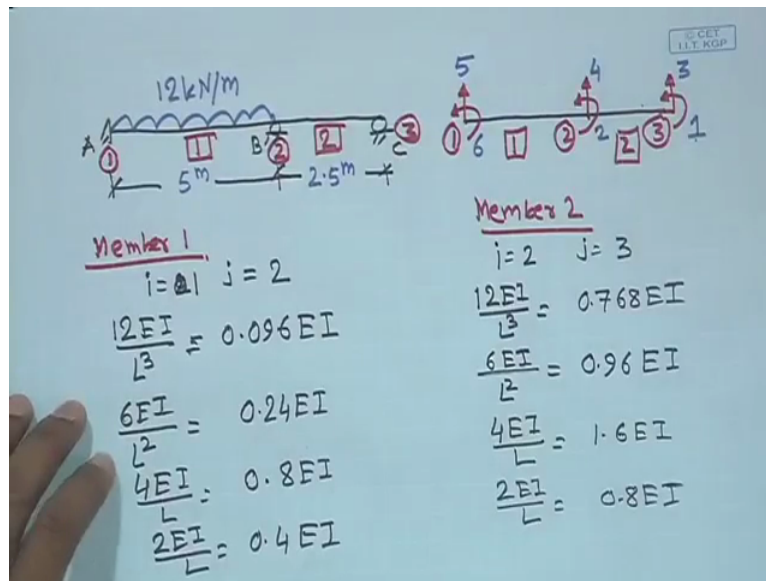 © CET
I.I.T. KGP
12kN/m
A 1 1 B 2 2 C 3
5m 2.5m
5 4 3
1 6 1 2 2 2 3 1
Member 1
i = 1 j = 2
12EI/L³ = 0.096EI
6EI/L² = 0.24EI
4EI/L = 0.8EI
2EI/L = 0.4EI
Member 2
i=2 j=3
12EI/L³ = 0.768EI
6EI/L² = 0.96EI
4EI/L = 1.6EI
2EI/L = 0.8EI